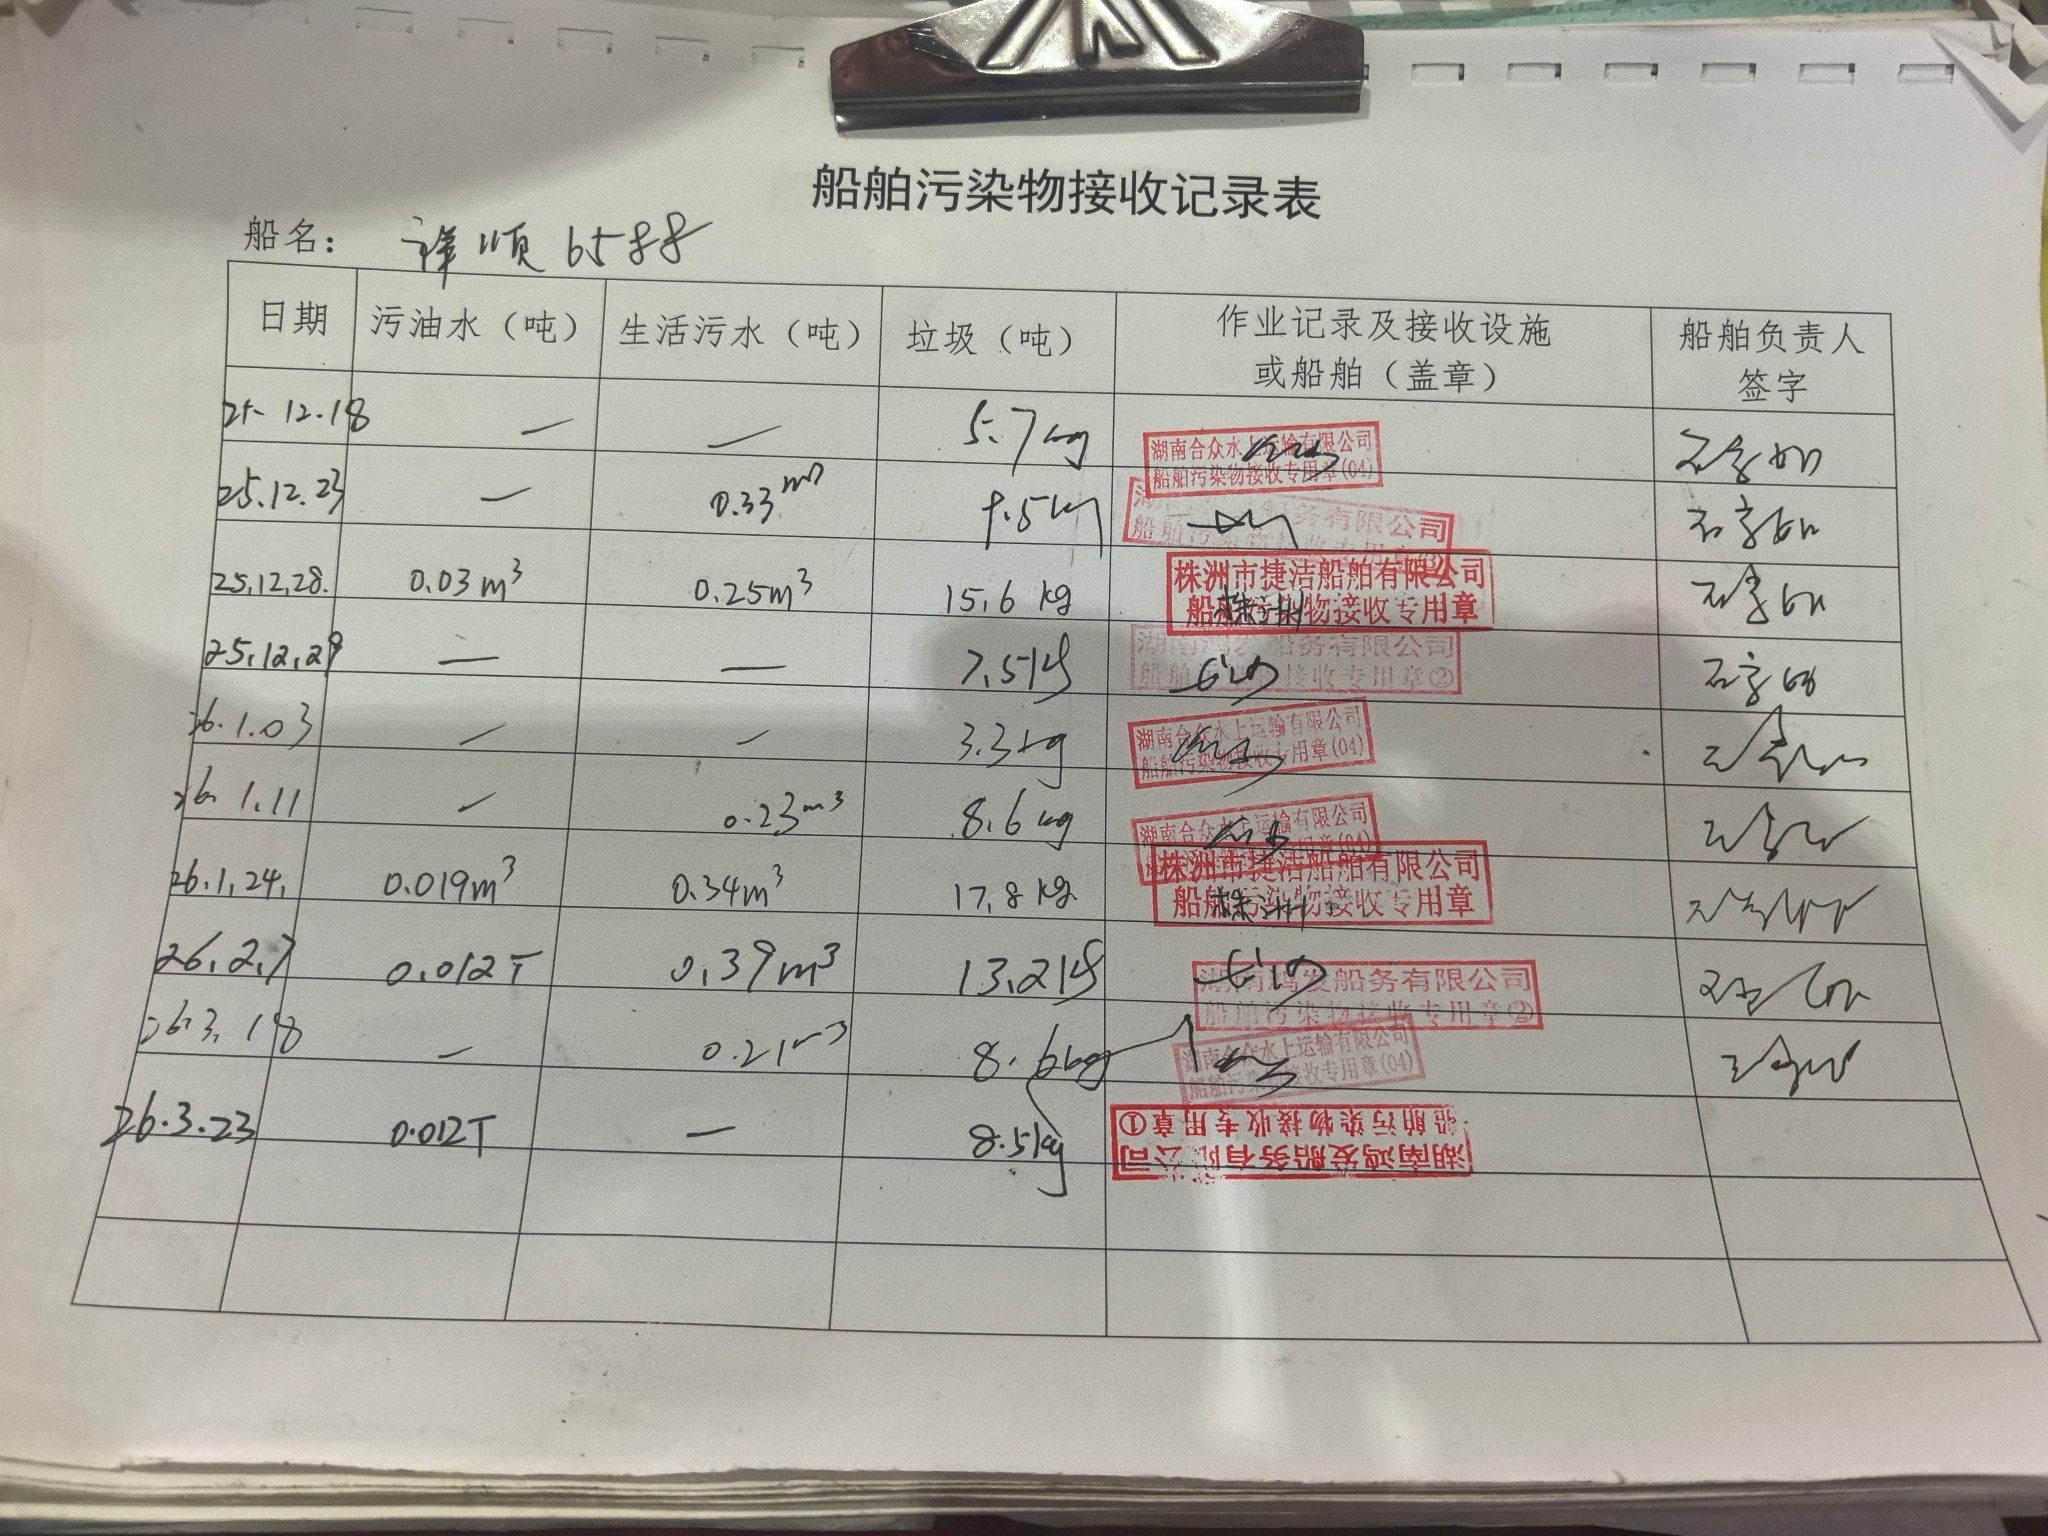 船舶污染物接收记录表
船名： 祥顺6588
日期 污油水（吨） 生活污水（吨） 垃圾（吨） 作业记录及接收设施或船舶（盖章） 船舶负责人签字
25.12.18 — — 5.7kg 湖南合众水上运输有限公司 船舶污染物接收专用章(04)
25.12.23 — 0.33m³ 9.5kg 船务有限公司 船舶污染物接收专用章②
25.12.28. 0.03m³ 0.25m³ 15.6kg 株洲市捷洁船舶有限公司 船舶污染物接收专用章 株洲
25.12.29 — — 7.5kg 湖南鸿发船务有限公司 船舶污染物接收专用章② 长沙
26.1.03 — — 3.3kg 湖南合众水上运输有限公司 船舶污染物接收专用章(04)
26.1.11 — 0.23m³ 8.6kg 湖南合众水上运输有限公司
26.1.24. 0.019m³ 0.34m³ 17.8kg 株洲市捷洁船舶有限公司 船舶污染物接收专用章 株洲
26.2.7 0.012T 0.39m³ 13.2kg 湖南鸿发船务有限公司 船舶污染物接收专用章② 长沙
26.3.18 — 0.21m³ 8.6kg 湖南合众水上运输有限公司 船舶污染物接收专用章(04)
26.3.23 0.012T — 8.5kg 湖南鸿发船务有限公司 船舶污染物接收专用章①